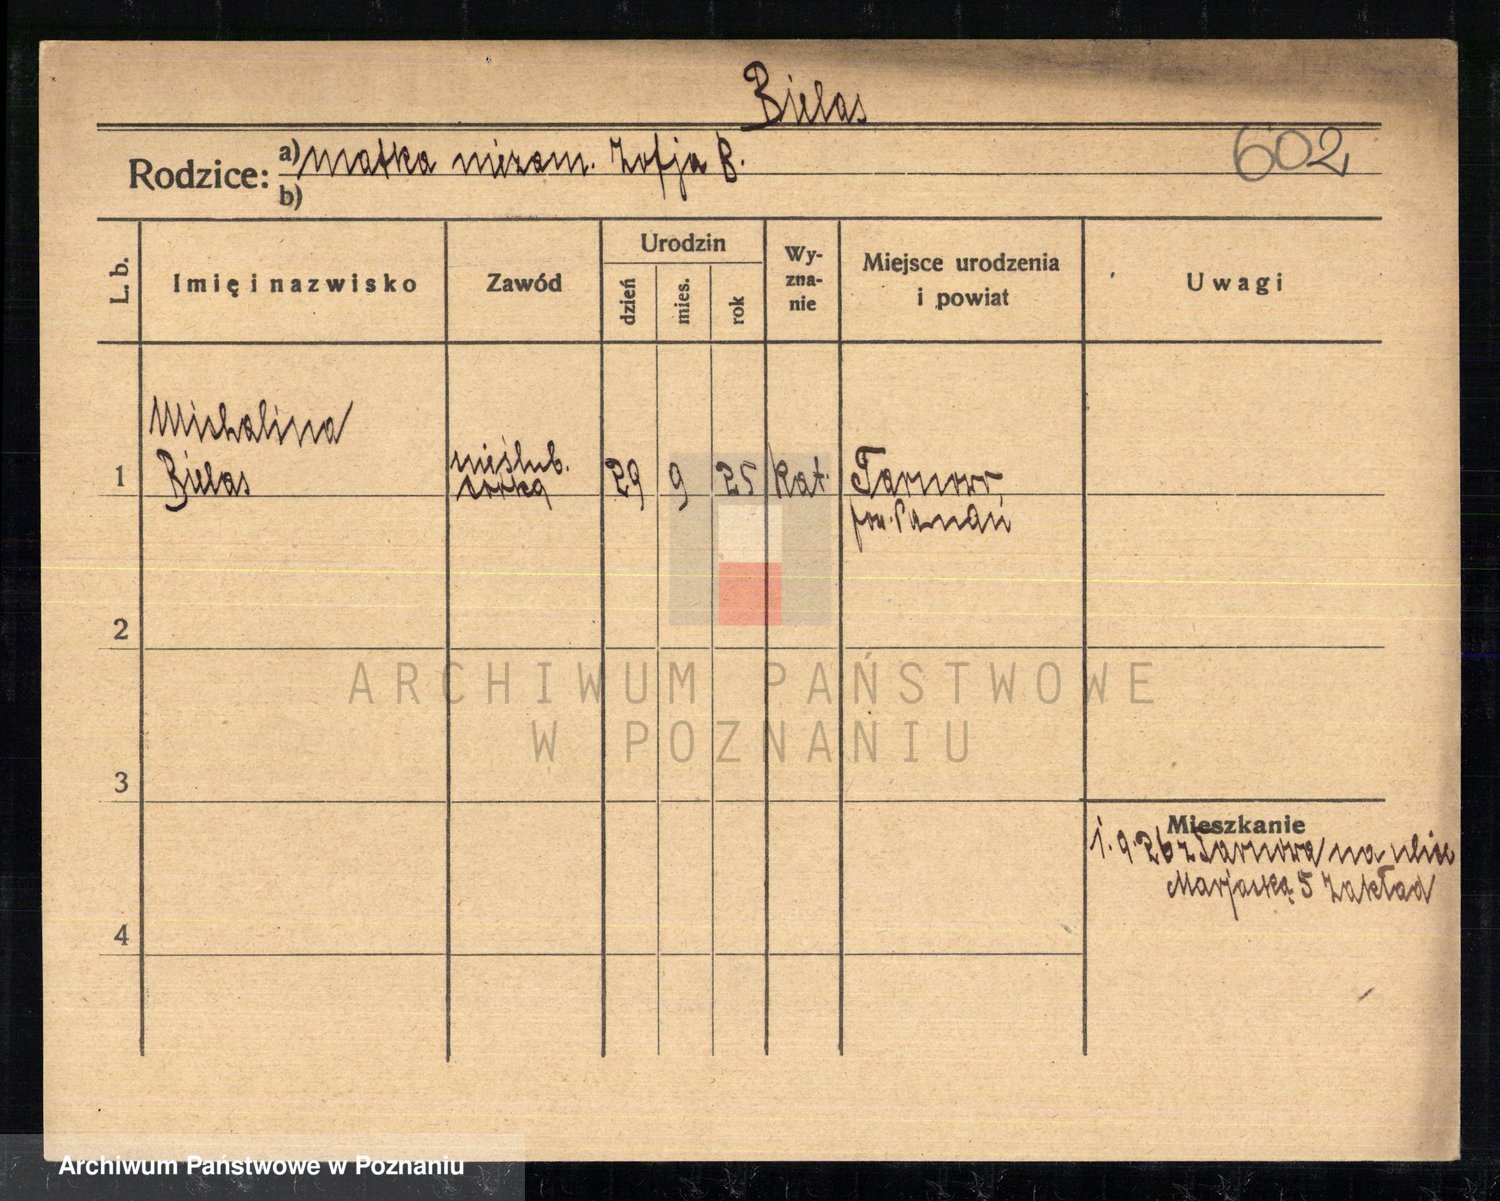 Bielas
Rodzice:
a) matka niezam. Zofja B.
602
b)
L. b.
Imię i nazwisko
Zawód
Urodzin
dzień
mies.
rok
Wy-
zna-
nie
Miejsce urodzenia
i powiat
Uwagi
Michalina
1 Bielas
nieślub.
córka
29 9 25 kat.
Tarnow,
pow.
2
ARCHIWUM PAŃSTWOWE
W POZNANIU
3
Mieszkanie
1.9.26 z Tarnowa na ulice
Marjacką 5 Zakład
4
Archiwum Państwowe w Poznaniu